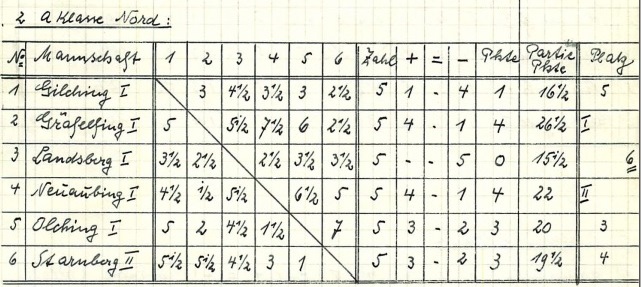 2 a Klasse Nord:
No Mannschaft 1 2 3 4 5 6 Zahl + = - Pkte Partie Pkte Platz
1 Gilching I 3 4 1/2 3 1/2 3 2 1/2 5 1 - 4 1 16 1/2 5
2 Gräfelfing I 5 5 1/2 7 1/2 6 2 1/2 5 4 - 1 4 26 1/2 I
3 Landsberg I 3 1/2 2 1/2 2 1/2 3 1/2 3 1/2 5 - - 5 0 15 1/2 6
4 Neuaubing I 4 1/2 1/2 5 1/2 6 1/2 5 5 4 - 1 4 22 II
5 Olching I 5 2 4 1/2 1 1/2 7 5 3 - 2 3 20 3
6 Starnberg II 5 1/2 5 1/2 4 1/2 3 1 5 3 - 2 3 19 1/2 4